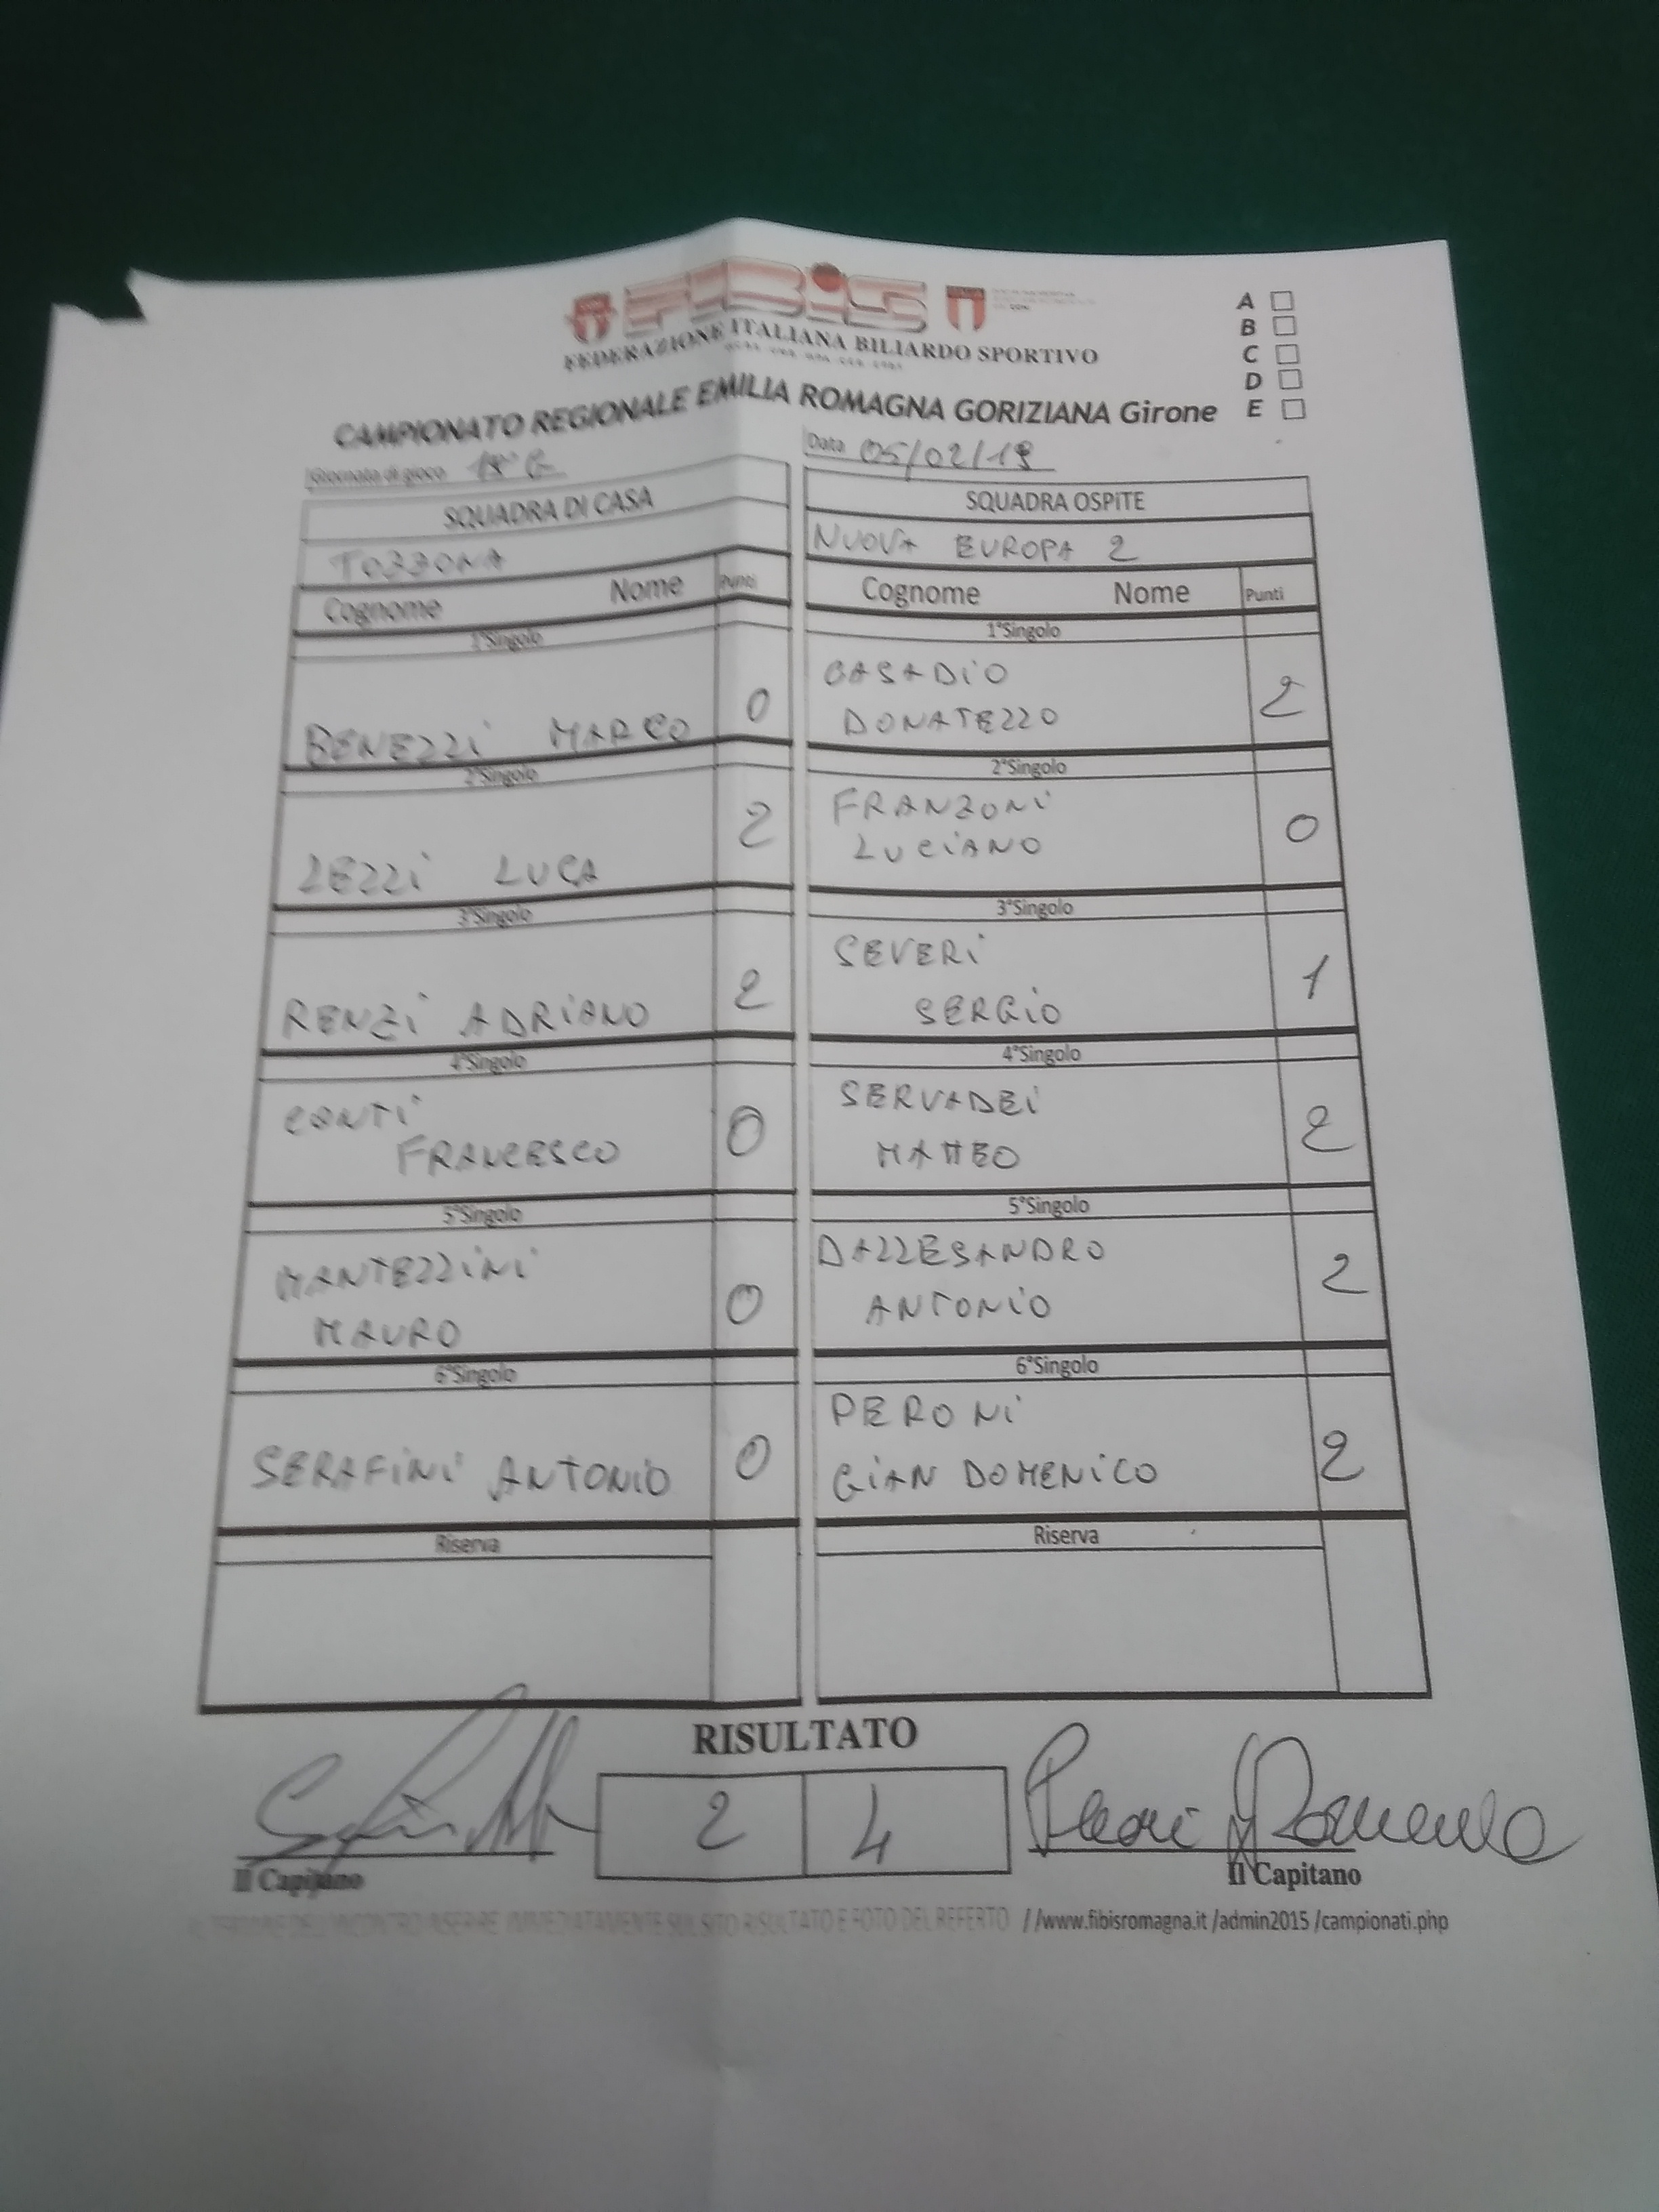 FIBiS
FEDERAZIONE ITALIANA BILIARDO SPORTIVO
A
B
C
D
E
CAMPIONATO REGIONALE EMILIA ROMAGNA GORIZIANA Girone
Giornata di gioco
Data 05/02/19
SQUADRA DI CASA
TOZZONA
Cognome Nome Punti
1°Singolo
BENELLI MARCO 0
2°Singolo
LELLI LUCA 2
3°Singolo
RENZI ADRIANO 2
4°Singolo
CONTI
FRANCESCO 0
5°Singolo
MANTELLINI
MAURO 0
6°Singolo
SERAFINI ANTONIO 0
Riserva
SQUADRA OSPITE
NUOVA EUROPA 2
Cognome Nome Punti
1°Singolo
CASADIO
DONATELLO 2
2°Singolo
FRANZONI
LUCIANO 0
3°Singolo
SEVERI
SERGIO 1
4°Singolo
SERVADEI
MATTEO 2
5°Singolo
DALLESANDRO
ANTONIO 2
6°Singolo
PERONI
GIAN DOMENICO 2
Riserva
RISULTATO
2 4
Il Capitano
Il Capitano
AL TERMINE DELL'INCONTRO INSERIRE IMMEDIATAMENTE SUL SITO RISULTATO E FOTO DEL REFERTO //www.fibisromagna.it /admin2015 /campionati.php